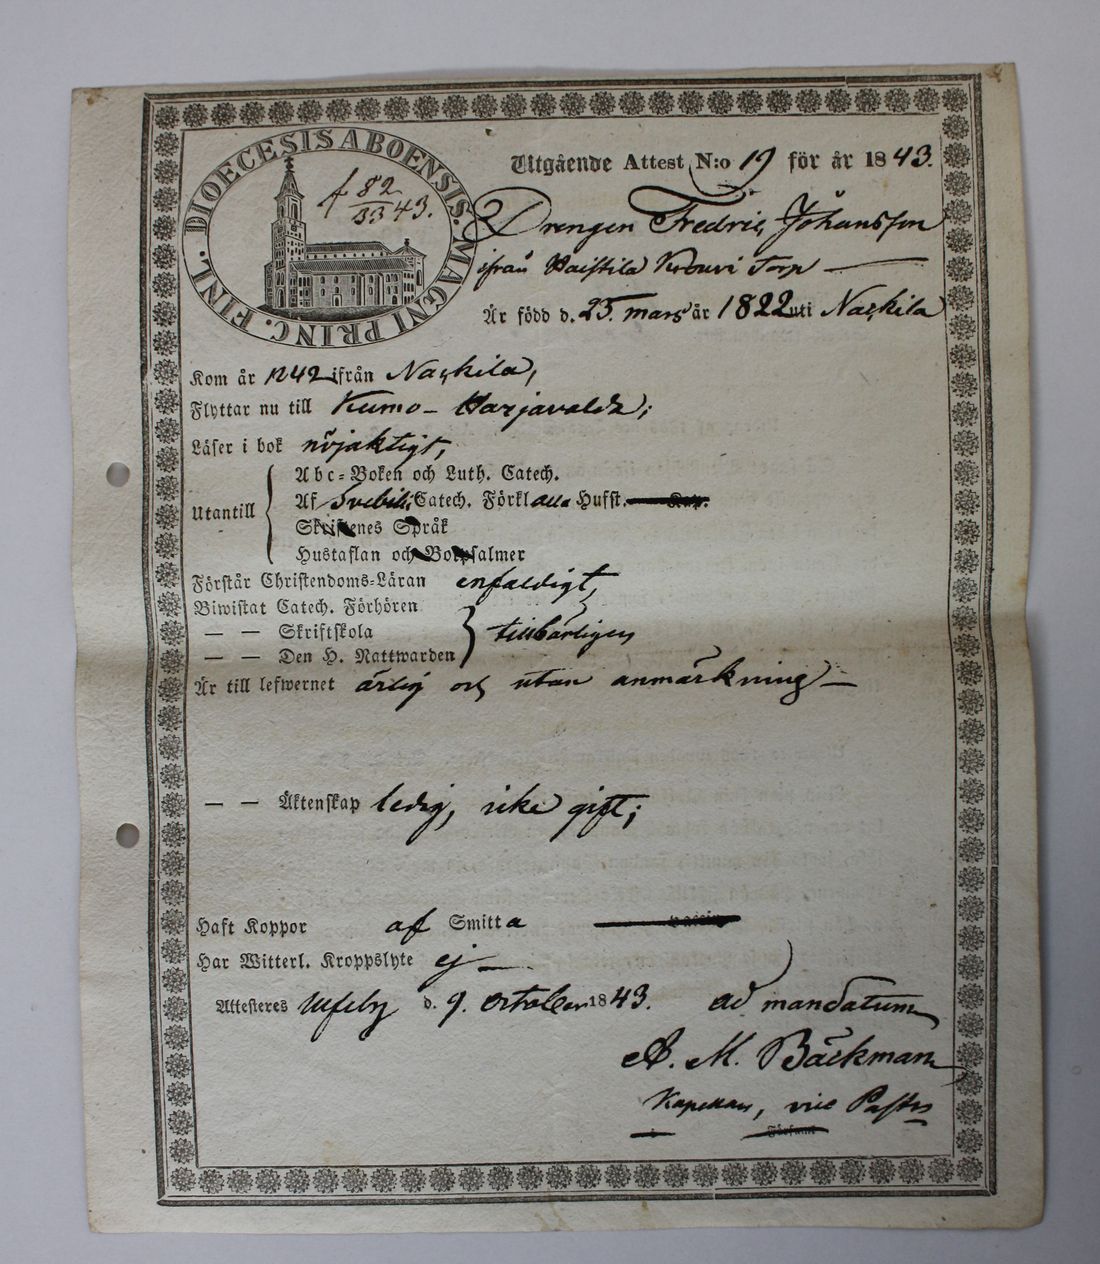 DIOECESIS ABOENSIS. MAGNI PRINC. FINL.
f 82/33 43.
Utgående Attest N:o 19 för år 1843.
Drengen Fredric Johansson
ifrån Haistila Krouvi Torp —
Är född d. 25. mars år 1822 uti Nackila
Kom år 1842 ifrån Nackila,
Flyttar nu till Kumo - Harjavalda;
Läser i bok nöjaktigt,
Utantill
Abc-Boken och Luth. Catech.
Af Svebilii Catech. Förkl alla Husst.
Skriftenes Språk
Hustaflan och Botpsalmer
Förstår Christendoms-Läran enfaldigt,
Biwistat Catech. Förhören
— — Skriftskola tillbörligen
— — Den H. Nattwarden
Är till lefwernet ärlig och utan anmärkning —
— — Äktenskap ledig, icke gift;
Haft Koppor af Smitta
Har Witterl. Kroppslyte ej —
Attesteres Ulfsby d. 9. october 1843. ad mandatum
A. M. Bäckman
Kapellan, vice Pastor